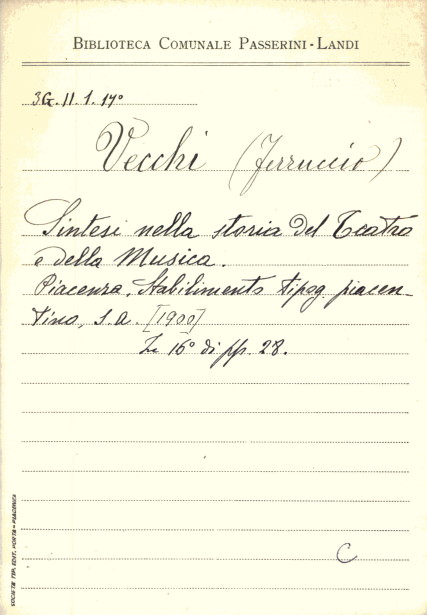 BIBLIOTECA COMUNALE PASSERINI-LANDI
3G. II. 1. 17º
Vecchi (Ferruccio)
Sintesi nella storia del Teatro
e della Musica.
Piacenza, Stabilimento tipog. piacen-
tino, s.a. [1900]
In 16º di pp. 28.
C
SOCIETÀ TIP. EDIT. PORTA - PIACENZA